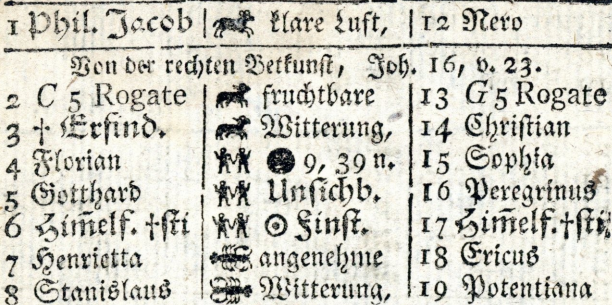 1 Phil. Jacob klare Luft, 12 Nero
Von der rechten Betkunst, Joh. 16, v. 23.
2 C 5 Rogate fruchtbare 13 G 5 Rogate
3 † Erfind. Witterung, 14 Christian
4 Florian ● 9, 39 n. 15 Sophia
5 Gotthard Unsichb. 16 Peregrinus
6 Him̄elf. †sti ☉ Finst. 17 Him̄elf. †sti,
7 Henrietta angenehme 18 Ericus
8 Stanislaus Witterung, 19 Potentiana